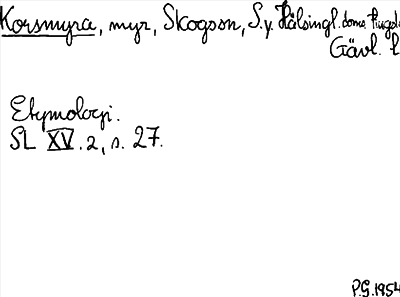 Korsmyra, myr, Skogson, S.v. Hälsingl. doms
Gävl. l
Etymologi.
SL XV.2, s. 27.
P.G. 1954